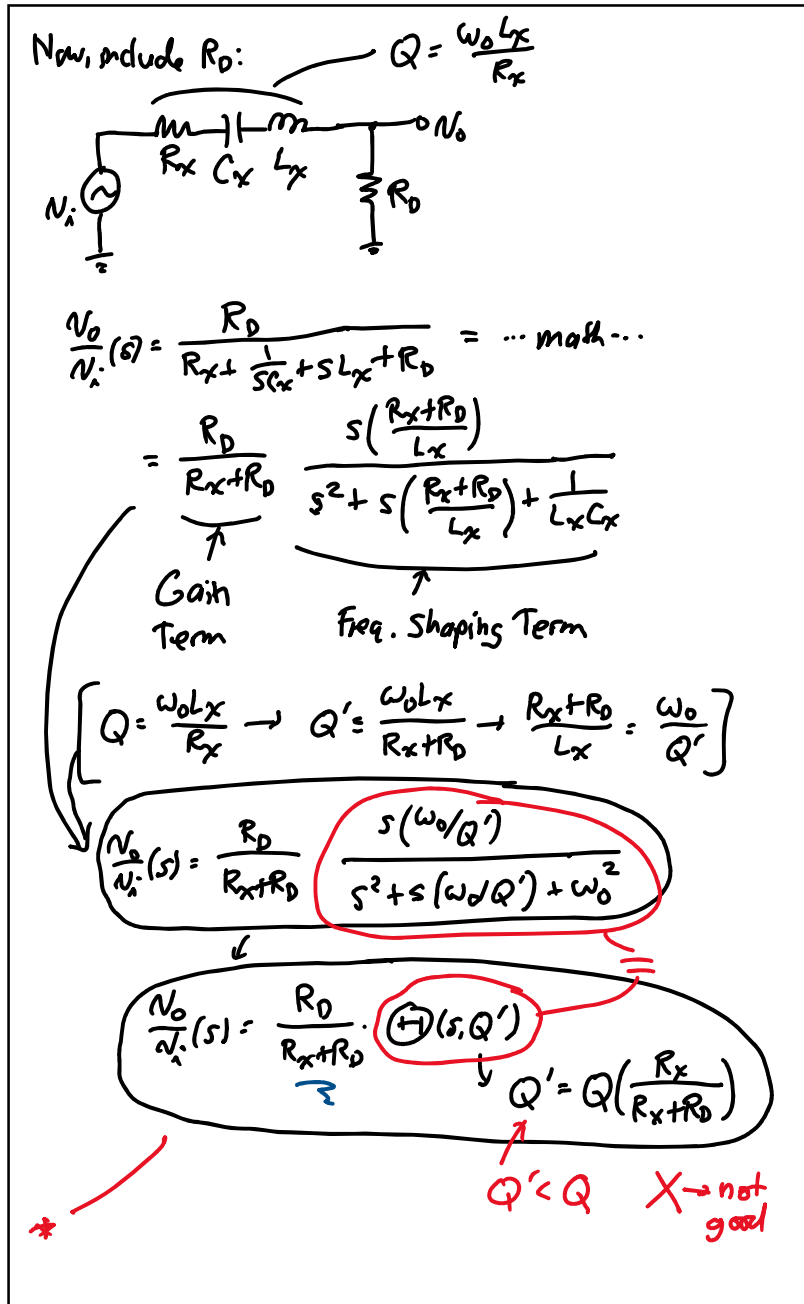 Now, include R_D: Q = ω₀L_x / R_x
R_x C_x L_x v_o
v_i R_D
v_o/v_i (s) = R_D / (R_x + 1/(sC_x) + sL_x + R_D) = ... math ...
= R_D / (R_x+R_D) · s((R_x+R_D)/L_x) / (s² + s((R_x+R_D)/L_x) + 1/(L_xC_x))
Gain
Term
Freq. Shaping Term
[Q = ω₀L_x/R_x → Q' = ω₀L_x/(R_x+R_D) → (R_x+R_D)/L_x = ω₀/Q']
v_o/v_i (s) = R_D/(R_x+R_D) s(ω₀/Q') / (s² + s(ω₀/Q') + ω₀²)
=
v_o/v_i (s) = R_D/(R_x+R_D) · Θ(s,Q')
Q' = Q(R_x/(R_x+R_D))
Q' < Q X → not
good
*